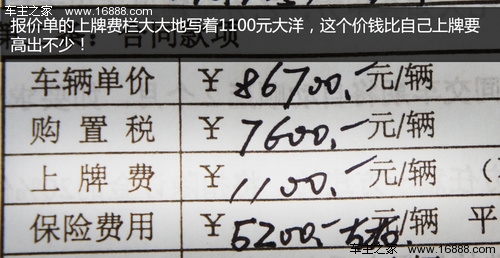 车主之家
Icauto.com.cn
报价单的上牌费栏大大地写着1100元大洋，这个价钱比自己上牌要
高出不少！
合同款项
车辆单价 ￥86700.- 元/辆
购置税 ￥7600.- 元/辆
上牌费 ￥1100.- 元/辆
保险费用 ￥5200.- 元/辆 平
车主之家